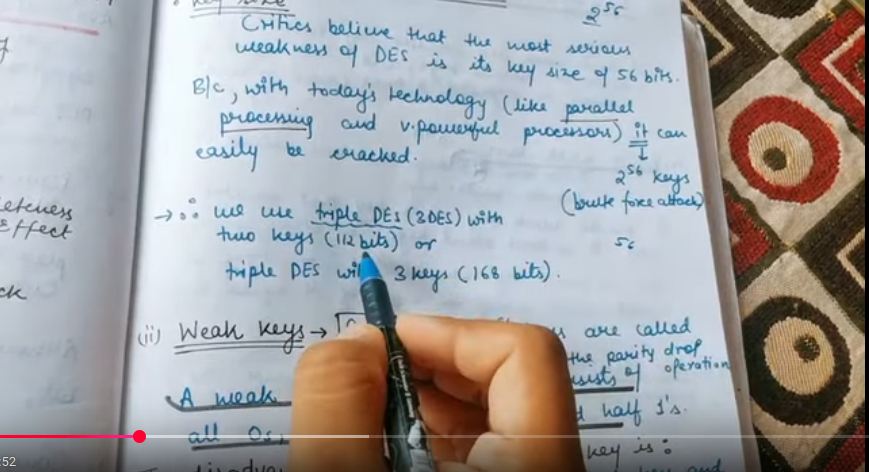 2^56
Critics believe that the most serious
weakness of DES is its key size of 56 bits.
B/c, with today's technology (like parallel
processing and v.powerful processors) it can
easily be cracked.
2^56 keys
(brute force attack)
→ ∴ we use triple DES (3DES) with
two keys (112 bits) or
56
triple DES with 3 keys (168 bits).
Effect
(ii) Weak keys →
are called
the parity drop
of operation
A weak
half 1's.
all 0s,
key is :
and
:52